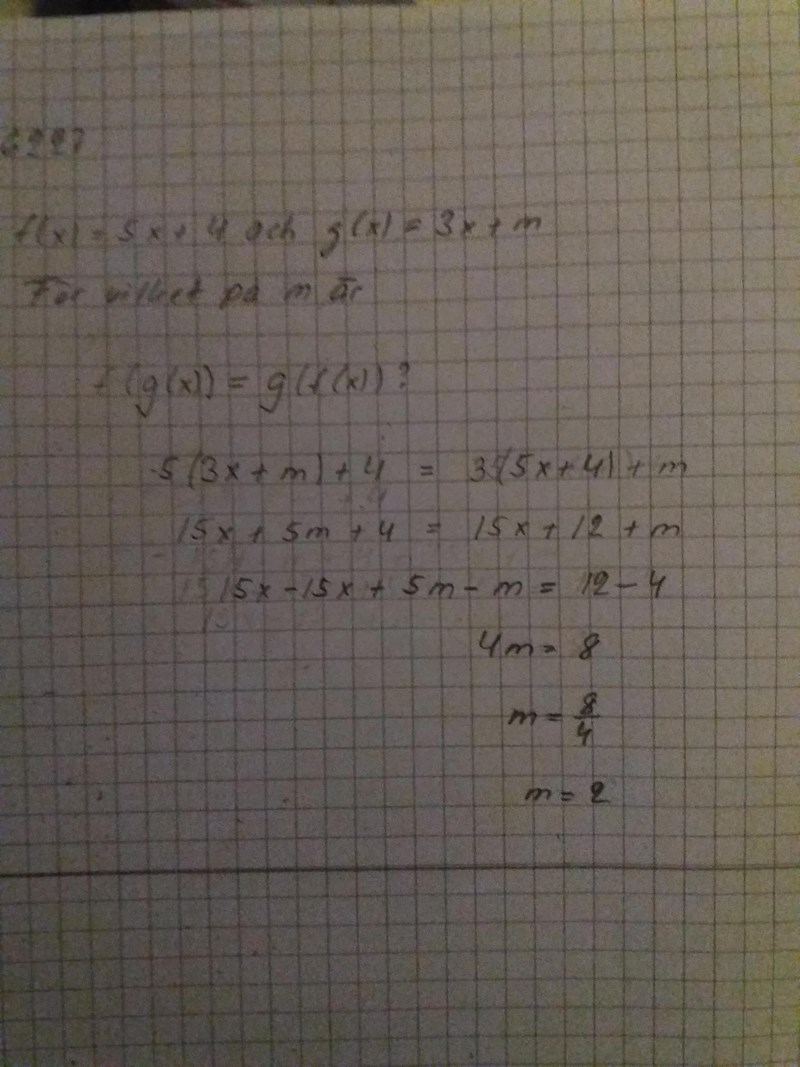 f(x) = 5x + 4 och g(x) = 3x + m
För vilket på m är
f(g(x)) = g(f(x))?
5(3x + m) + 4 = 3(5x + 4) + m
15x + 5m + 4 = 15x + 12 + m
15x - 15x + 5m - m = 12 - 4
4m = 8
m = 8/4
m = 2